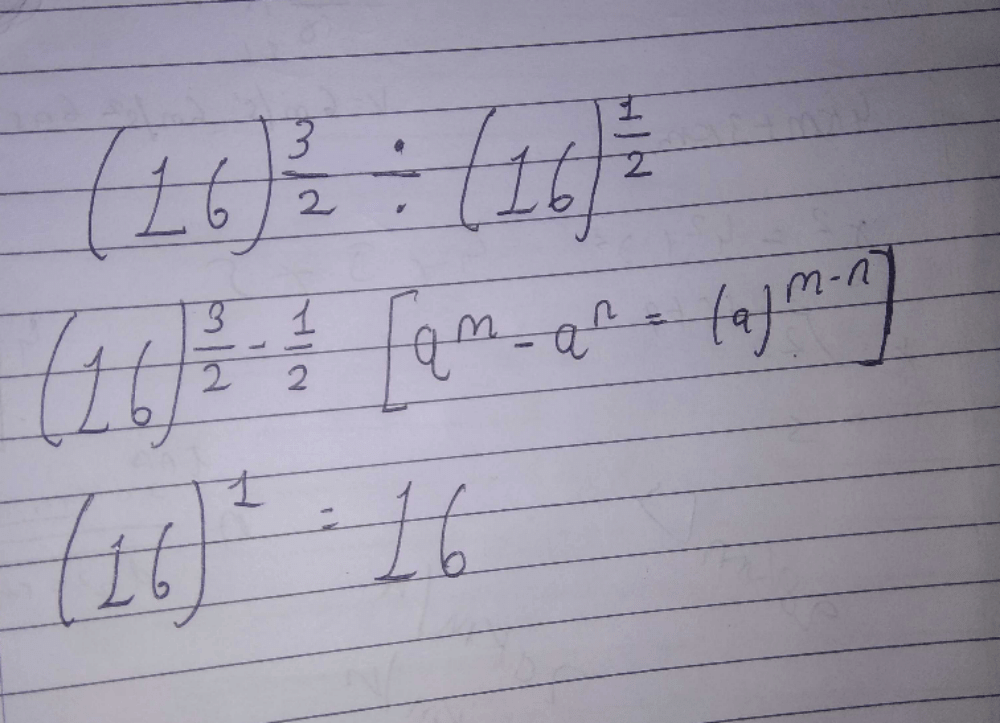 (16)^{3/2} ÷ (16)^{1/2}
(16)^{3/2 - 1/2} [a^m - a^n = (a)^{m-n}]
(16)^1 = 16